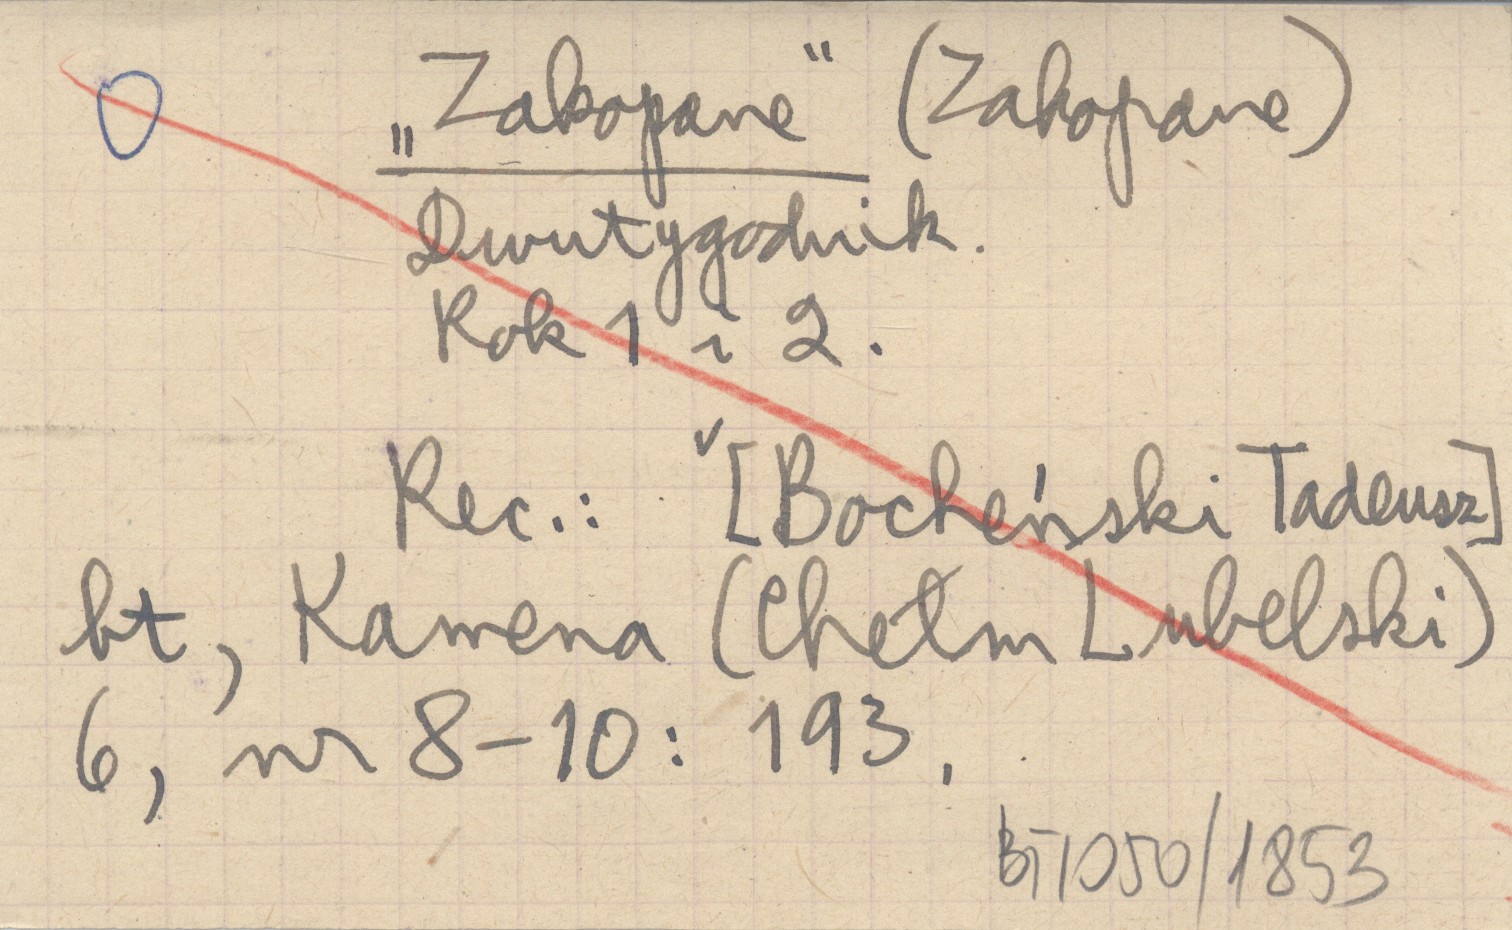 „Zakopane" (Zakopane)
Dwutygodnik.
Rok 1 i 2.
Rec.: [Bocheński Tadeusz]
bt, Kamena (Chełm Lubelski)
6, nr 8-10: 193.
BT1050/1853